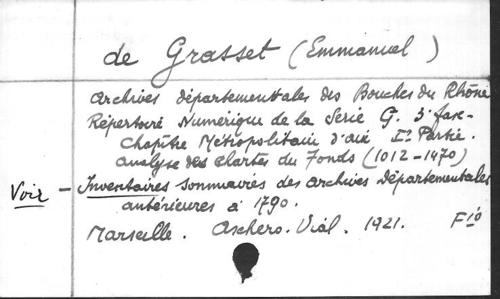 de Grasset (Emmanuel)
Archives départementales des Bouches du Rhône
Répertoire Numérique de la Serie G. 3e fasc-
Chapitre Métropolitain d'aix Ie Partie.
analyse des chartes du Fonds (1012-1470)
Voir - Inventaires sommaires des archives Départementales
antérieures à 1790.
Marseille. Aschero. Vial. 1921. Fio